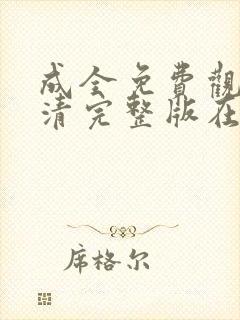 成全免費觀
清完整版在
席格尔